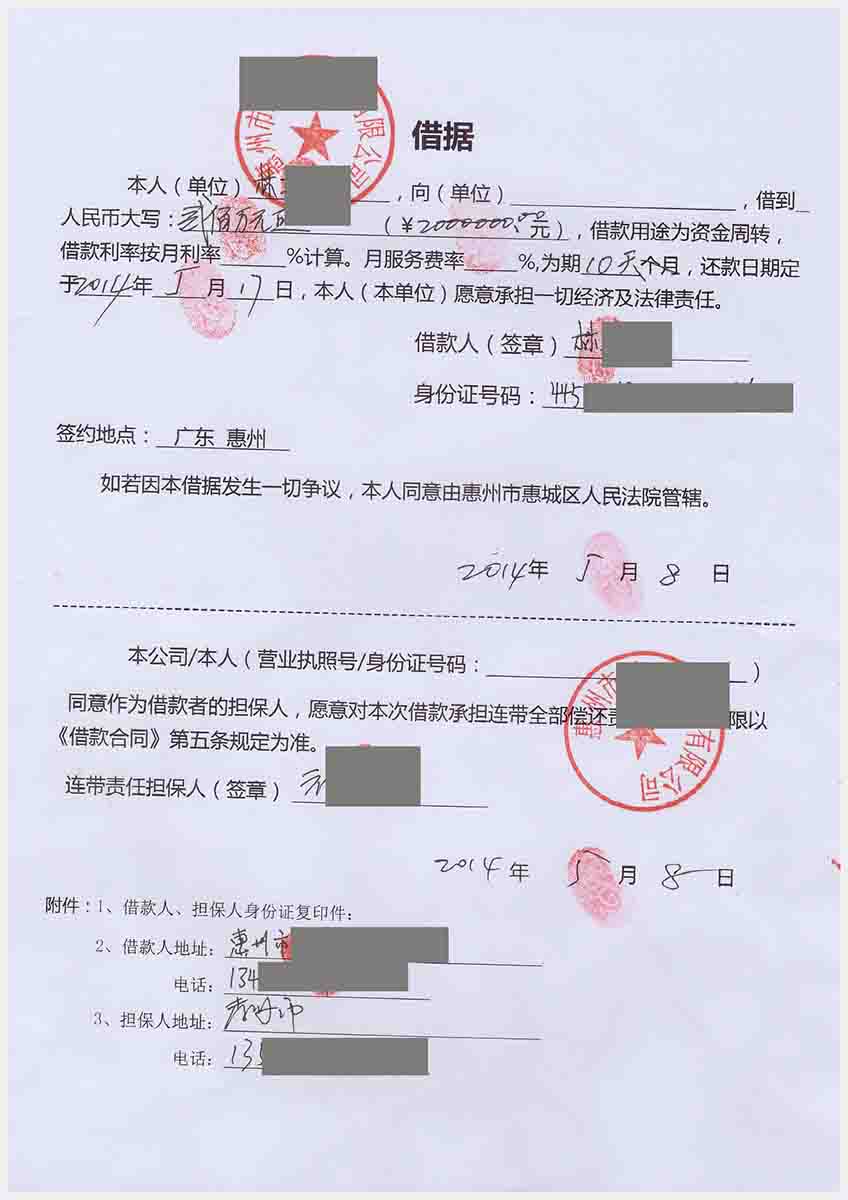 借据
本人（单位）林，向（单位），借到
人民币大写：贰佰万元（￥2000000.00元），借款用途为资金周转，
借款利率按月利率%计算。月服务费率%,为期10天个月，还款日期定
于2014年5月17日，本人（本单位）愿意承担一切经济及法律责任。
借款人（签章）林
身份证号码：445
签约地点：广东 惠州
如若因本借据发生一切争议，本人同意由惠州市惠城区人民法院管辖。
2014年5月8日
本公司/本人（营业执照号/身份证号码：）
同意作为借款者的担保人，愿意对本次借款承担连带全部偿还责限以
《借款合同》第五条规定为准。
连带责任担保人（签章）
2014年5月8日
附件：1、借款人、担保人身份证复印件；
2、借款人地址：惠州市
电话：134
3、担保人地址：惠州市
电话：135
州市
有限公司
惠州市
有限公司